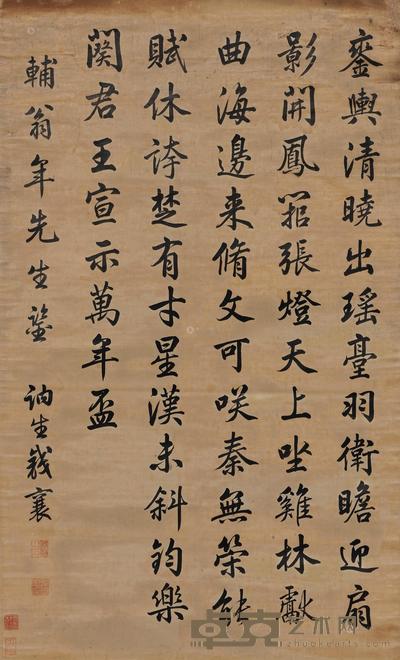 銮輿清曉出瑶臺羽衛瞻迎扇
影開鳳張燈天上坐雞林獻
曲海邊来脩文可咲秦無策能
賦休誇楚有才星漢未斜鈞樂
闋君王宣示萬年盃
輔翁年先生鑒 訥生錢襄
卓克艺术网